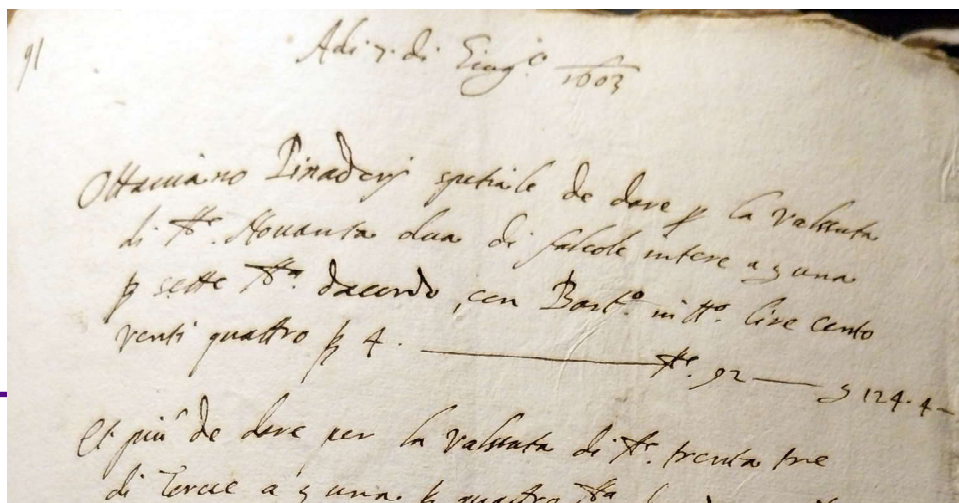 91
Adi 7. di Giug.o 1603
Ottaviano Pinadori spetiale de dare p la valsuta
di tt.e Novanta dua di falcole intere a 3 una
p sette tt.a dacordo, con Bart.o in tt.o lire cento
venti quattro p 4. tt.e 92 3 124.4
Et più de dare per la valsuta di tt.e trenta tre
di Torcie a 3 una. p quattro tt.a